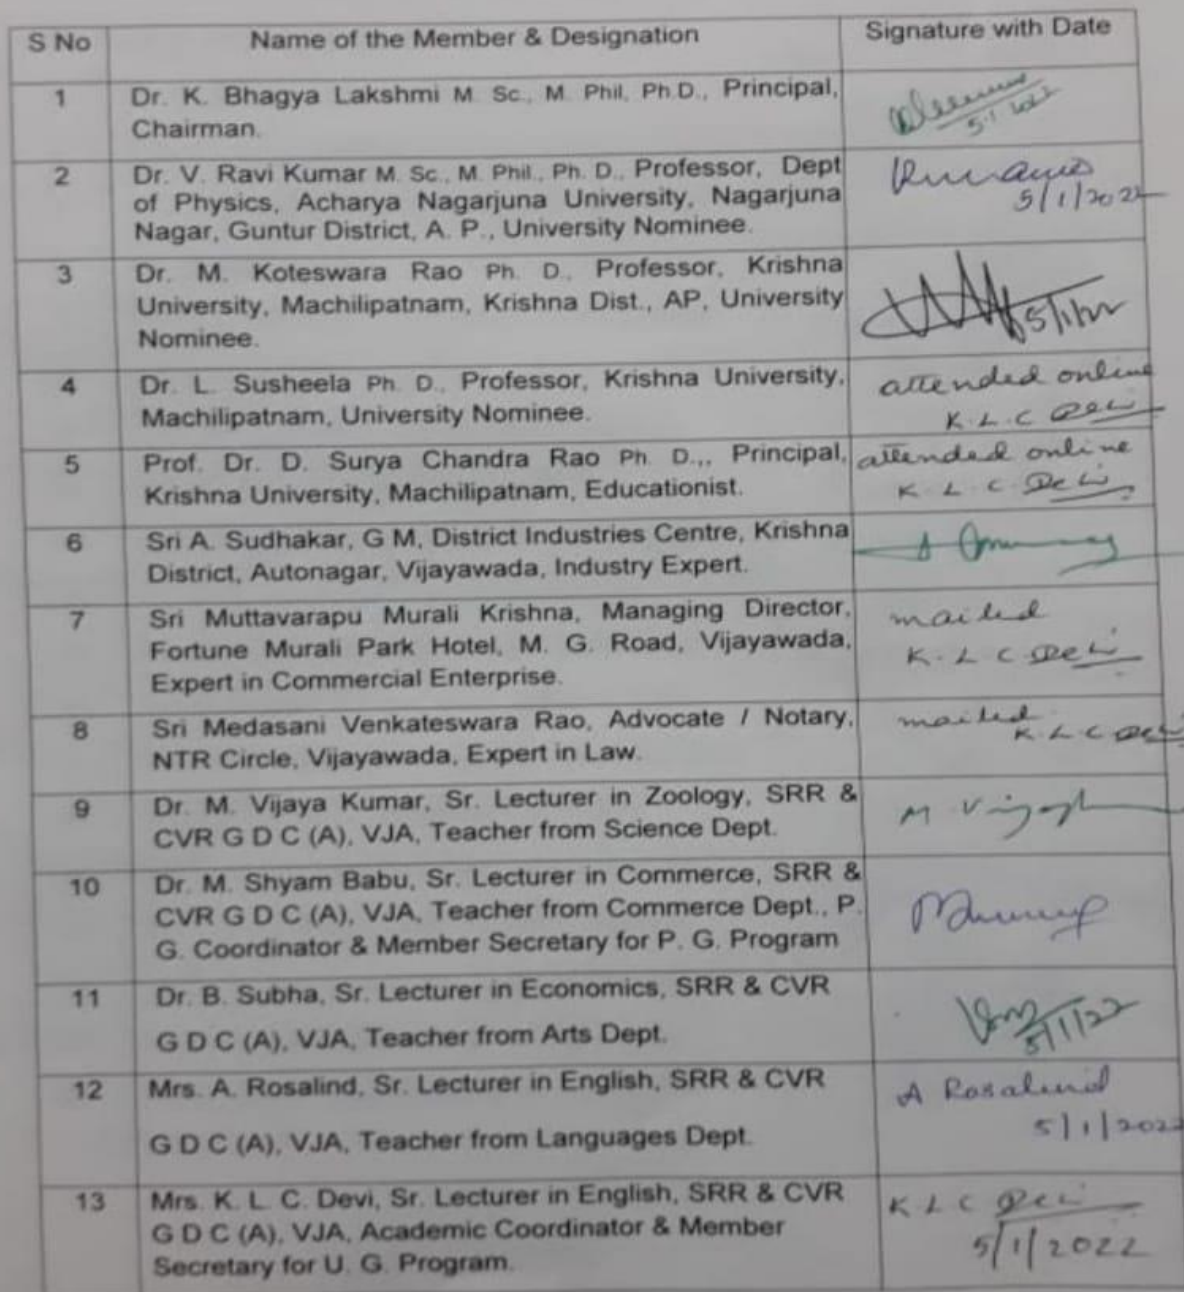 S No Name of the Member & Designation Signature with Date
1 Dr. K. Bhagya Lakshmi M. Sc., M. Phil, Ph.D., Principal,
Chairman.
5.1.2022
2 Dr. V. Ravi Kumar M. Sc., M. Phil., Ph. D., Professor, Dept
of Physics, Acharya Nagarjuna University, Nagarjuna
Nagar, Guntur District, A. P., University Nominee.
5/1/2022
3 Dr. M. Koteswara Rao Ph. D., Professor, Krishna
University, Machilipatnam, Krishna Dist., AP, University
Nominee.
5/1/22
4 Dr. L. Susheela Ph. D., Professor, Krishna University,
Machilipatnam, University Nominee.
attended online
K. L. C Devi
5 Prof. Dr. D. Surya Chandra Rao Ph. D.,, Principal,
Krishna University, Machilipatnam, Educationist.
attended online
K. L. C. Devi
6 Sri A. Sudhakar, G M, District Industries Centre, Krishna
District, Autonagar, Vijayawada, Industry Expert.
7 Sri Muttavarapu Murali Krishna, Managing Director,
Fortune Murali Park Hotel, M. G. Road, Vijayawada,
Expert in Commercial Enterprise.
mailed
K. L C. Devi
8 Sri Medasani Venkateswara Rao, Advocate / Notary,
NTR Circle, Vijayawada, Expert in Law.
mailed
K. L C Devi
9 Dr. M. Vijaya Kumar, Sr. Lecturer in Zoology, SRR &
CVR G D C (A), VJA, Teacher from Science Dept.
10 Dr. M. Shyam Babu, Sr. Lecturer in Commerce, SRR &
CVR G D C (A), VJA, Teacher from Commerce Dept., P.
G. Coordinator & Member Secretary for P. G. Program
11 Dr. B. Subha, Sr. Lecturer in Economics, SRR & CVR
G D C (A), VJA, Teacher from Arts Dept.
5/1/22
12 Mrs. A. Rosalind, Sr. Lecturer in English, SRR & CVR
G D C (A), VJA, Teacher from Languages Dept.
A Rosalind
5/1/2022
13 Mrs. K. L. C. Devi, Sr. Lecturer in English, SRR & CVR
G D C (A), VJA, Academic Coordinator & Member
Secretary for U. G. Program.
K L C Devi
5/1/2022